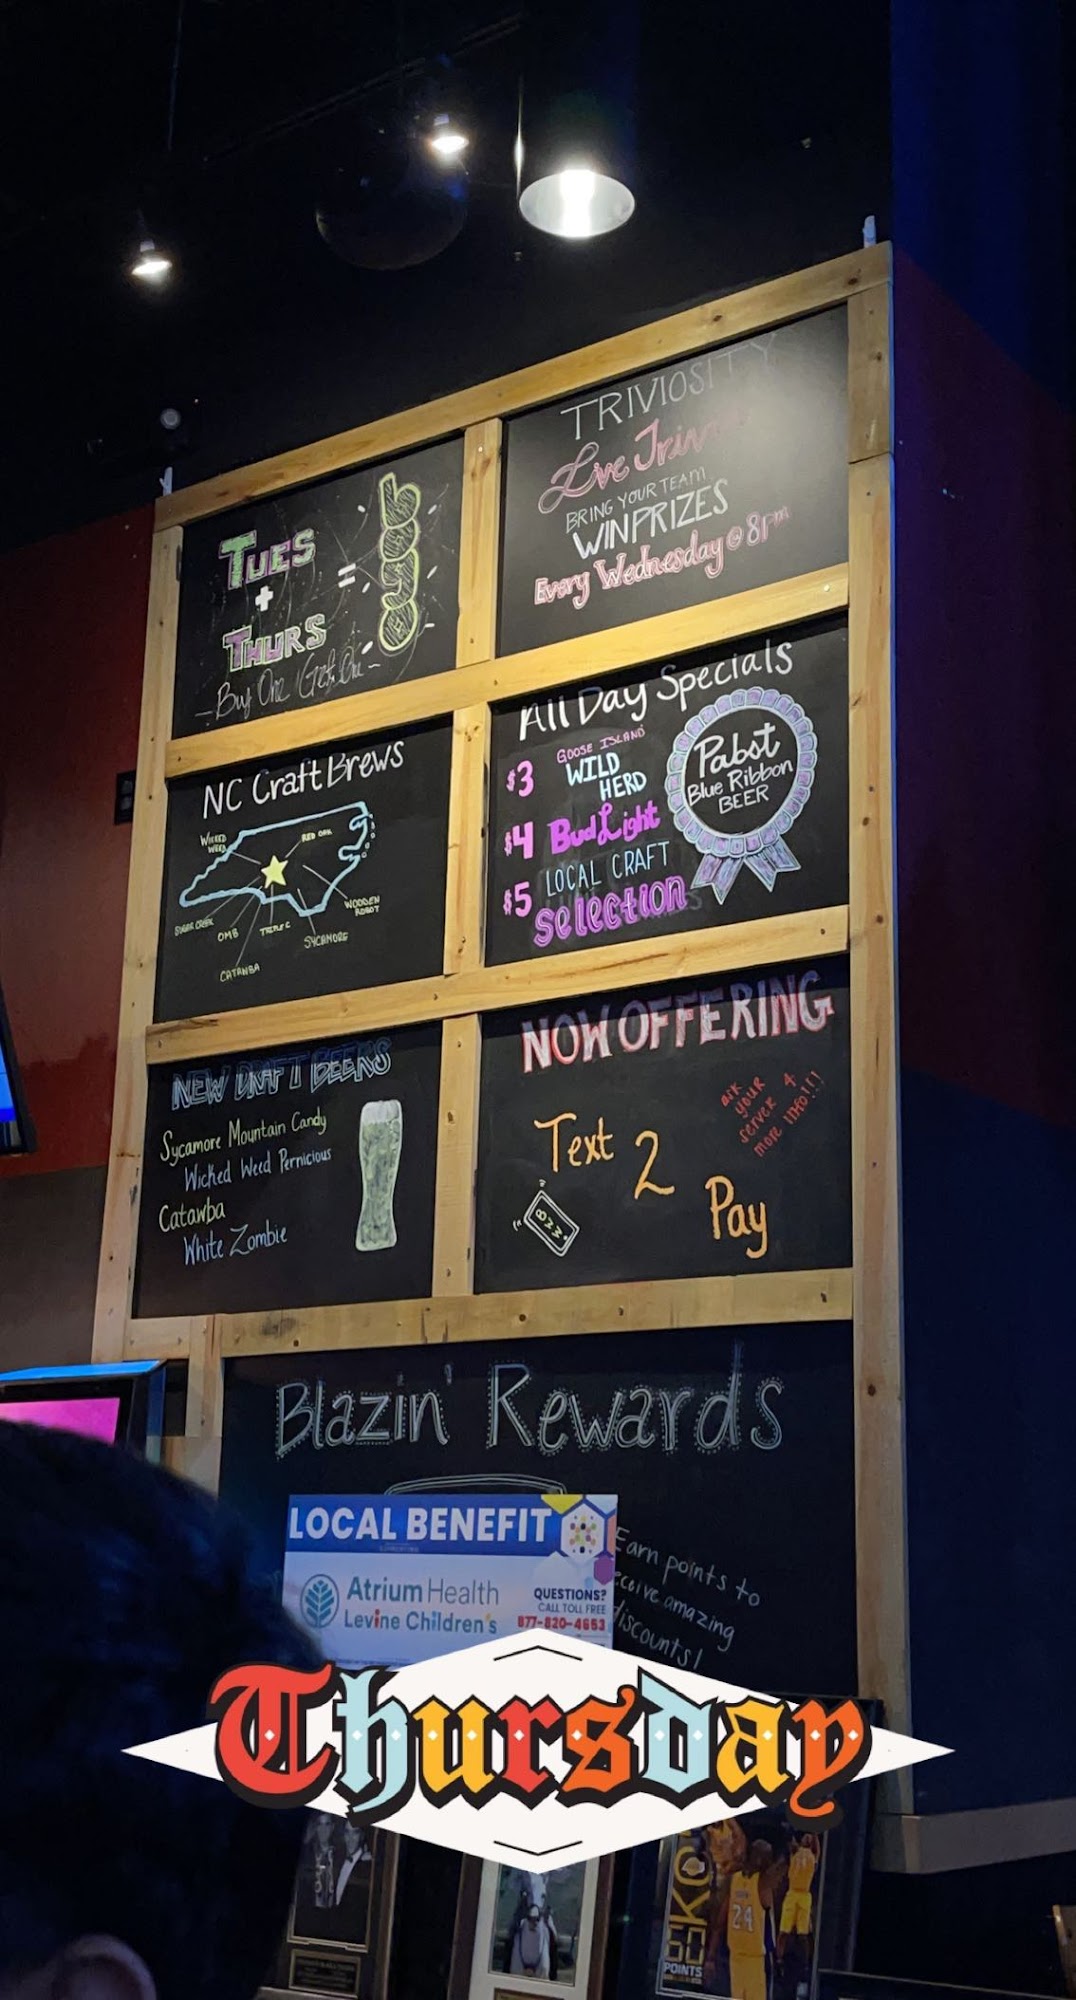 TRIVIOSITY
Live Trivia
BRING YOUR TEAM
WIN PRIZES
Every Wednesday @ 8pm
TUES
+
THURS
=
BOGO
- Buy One Get One -
All Day Specials
$3 GOOSE ISLAND
WILD
HERD
$4 Bud Light
$5 LOCAL CRAFT
Selection
Pabst
Blue Ribbon
BEER
NC Craft Brews
WICKED
WEED
RED OAK
SUGAR CREEK
OMB
TRIPLE C
SYCAMORE
WOODEN
ROBOT
CATAWBA
NOW OFFERING
ask
your
server 4
more info!!!!
Text 2 Pay
NEW DRAFT BEERS
Sycamore Mountain Candy
Wicked Weed Pernicious
Catawba
White Zombie
Blazin' Rewards
Earn points to
receive amazing
discounts!
LOCAL BENEFIT
Atrium Health
Levine Children's
QUESTIONS?
CALL TOLL FREE
877-820-4653
Thursday
KO
60
POINTS
24